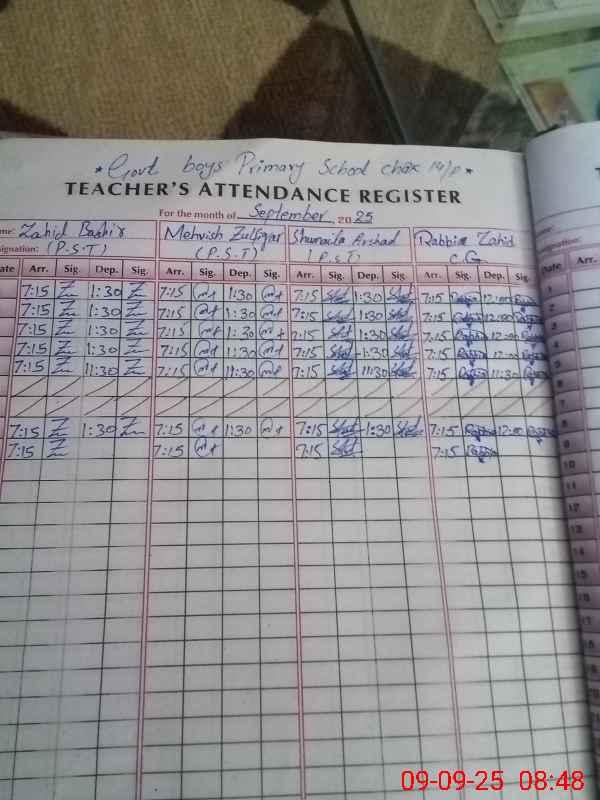 * Govt boys Primary School chak 14/p *
TEACHER'S ATTENDANCE REGISTER
For the month of September 2025
me: Zahid Bashir Mehvish Zulfiqar Shumaila Arshad Rabbia Zahid
signation: (P.S.T) (P.S.T) (P.S.T) C.G
Date Arr. Sig. Dep. Sig. Arr. Sig. Dep. Sig. Arr. Sig. Dep. Sig. Arr. Sig. Dep. Sig.
7:15 1:30 7:15 1:30 7:15 1:30 7:15 12:00
7:15 1:30 7:15 1:30 7:15 1:30 7:15 12:00
7:15 1:30 7:15 1:30 7:15 1:30 7:15 12:00
7:15 1:30 7:15 1:30 7:15 1:30 7:15 12:00
7:15 11:30 7:15 11:30 7:15 11:30 7:15 11:30
7:15 1:30 7:15 1:30 7:15 1:30 7:15 12:00
7:15 7:15 7:15 7:15
Date Arr.
1
2
3
4
5
6
7
8
9
10
11
12
13
14
15
09-09-25 08:48